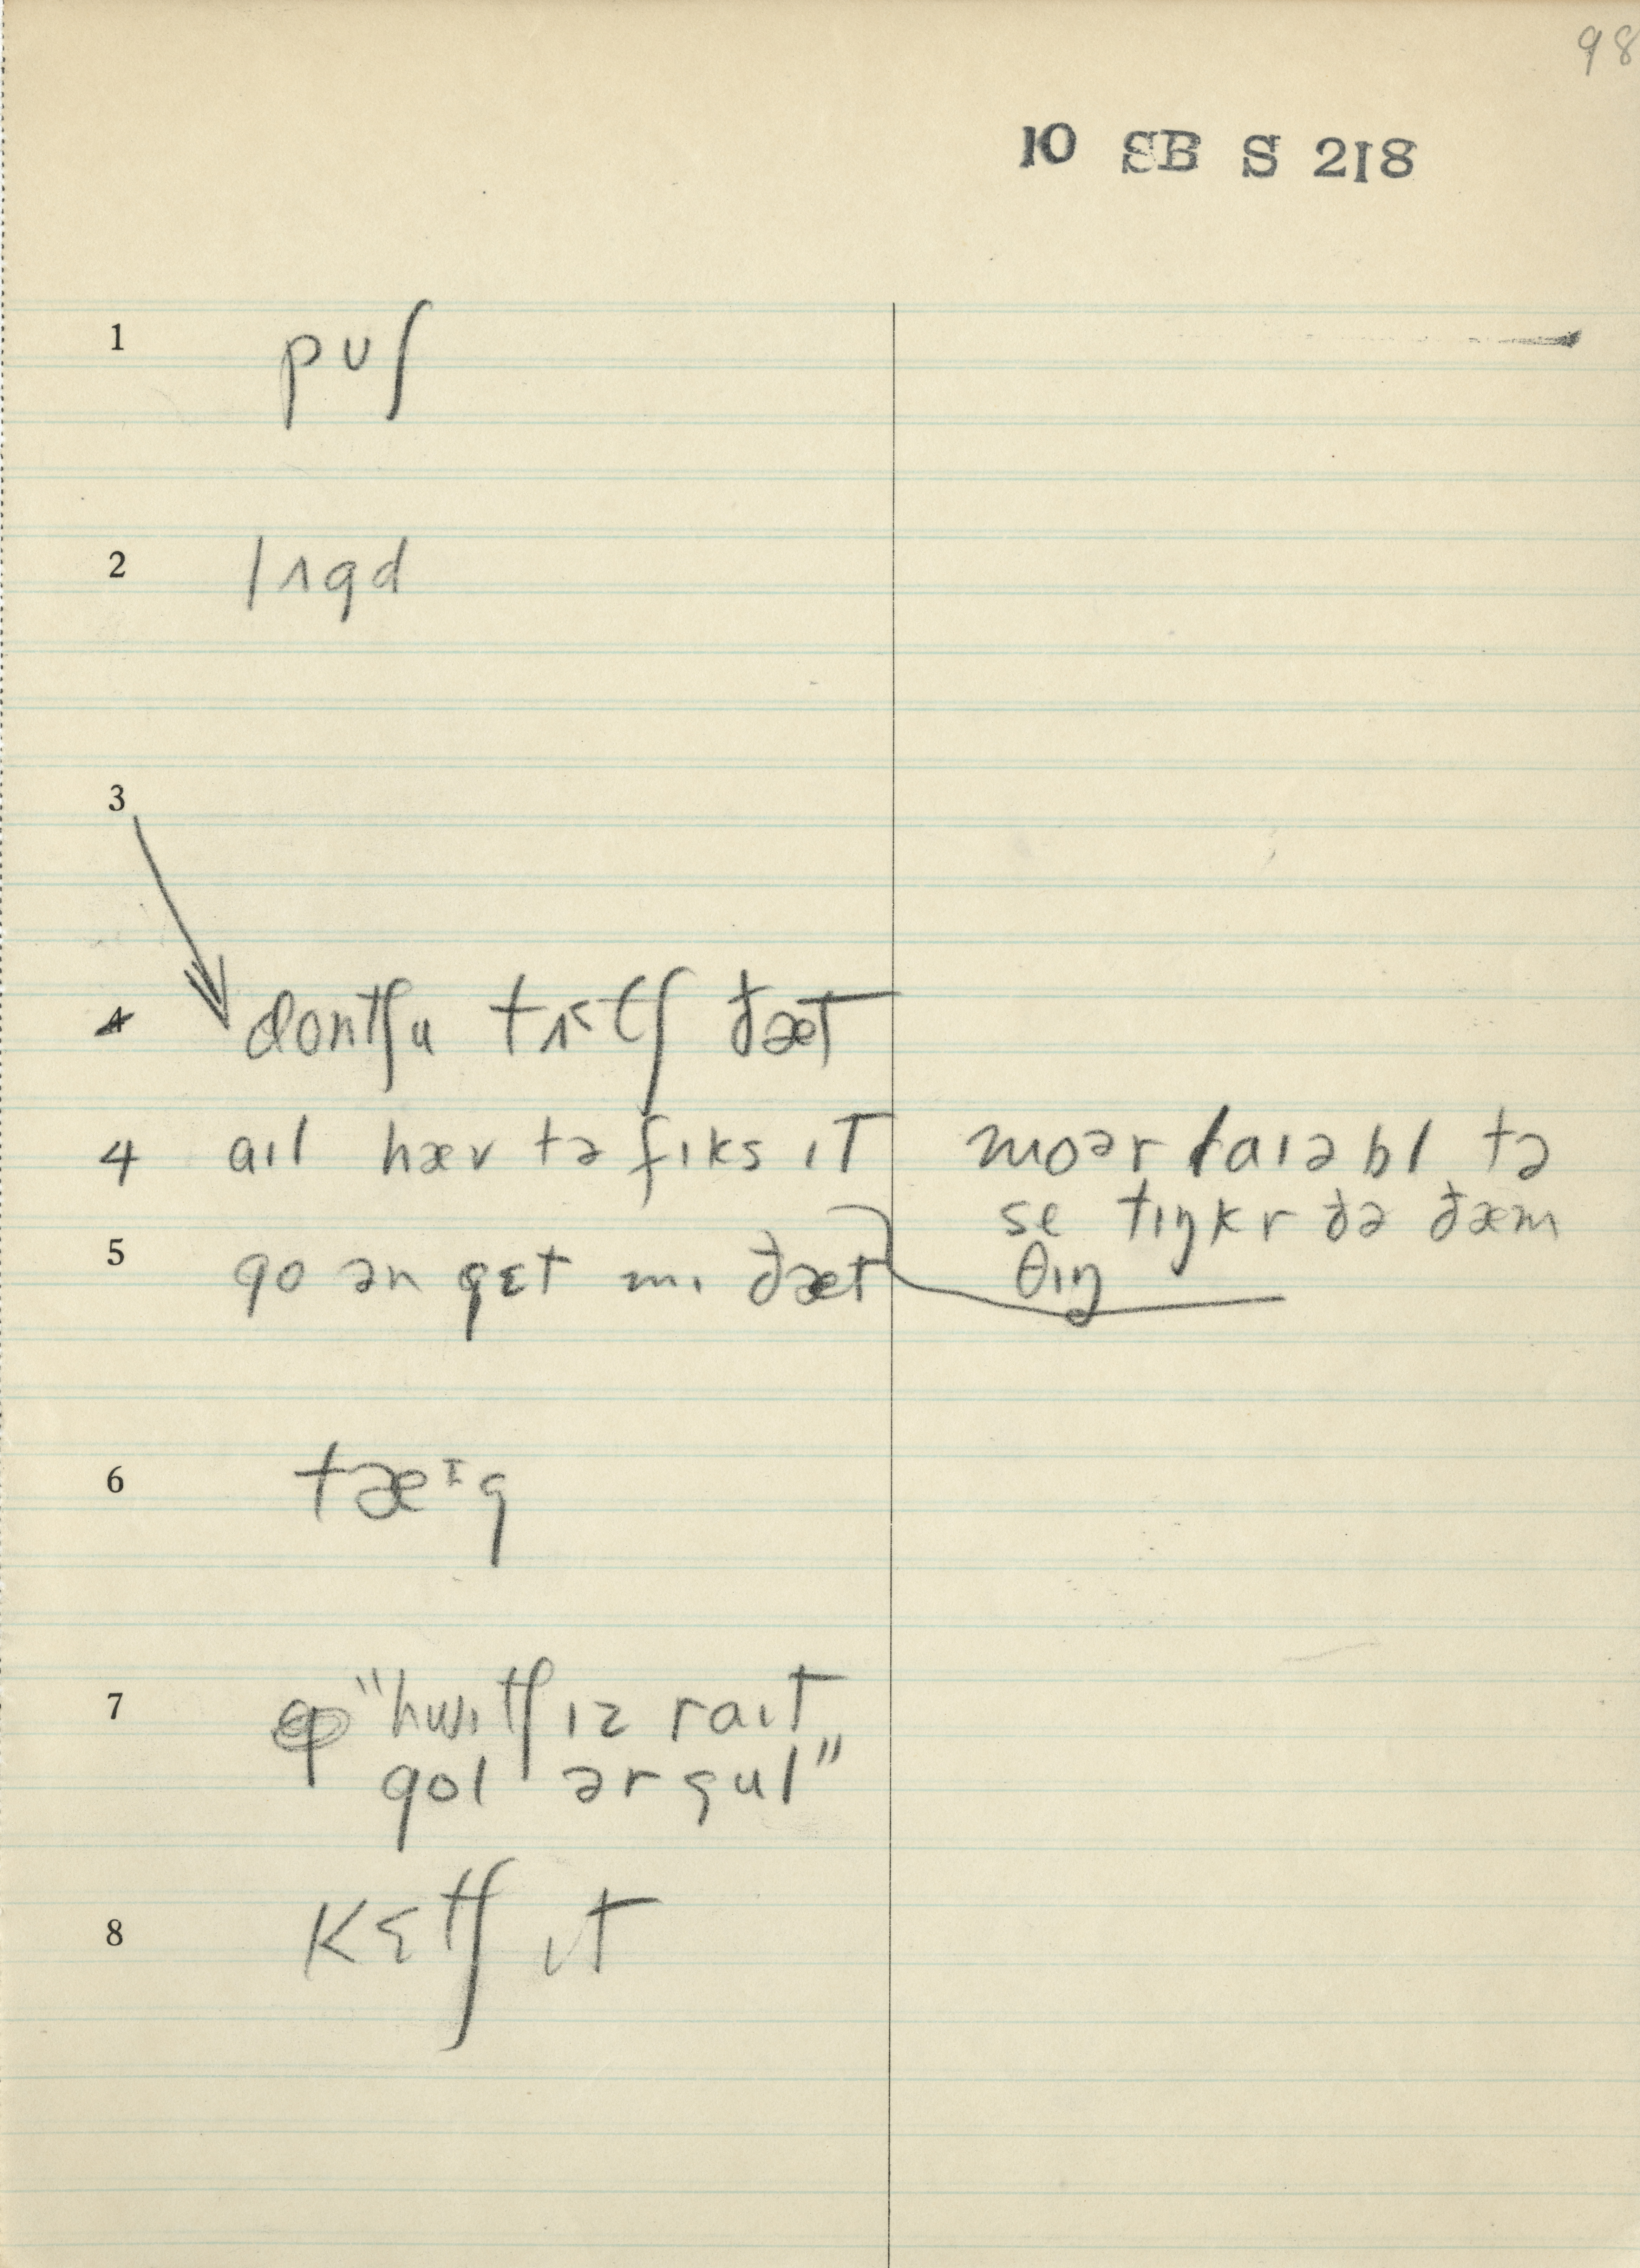 98
10 SB S 218
1 pʊʃ
2 lʌgd
3
4 dontʃu tʌtʃ ðæt
4 aɪl hæv tə fɪks ɪt
moər laɪəbl tə
se tɪŋkr ðə ðæm
θɪŋ
5 go ən gɛt mɪ ðæt
6 tæᶦg
7 "hwɪtʃ ɪz raɪt
gol ər gul"
8 kɛtʃ ɪt